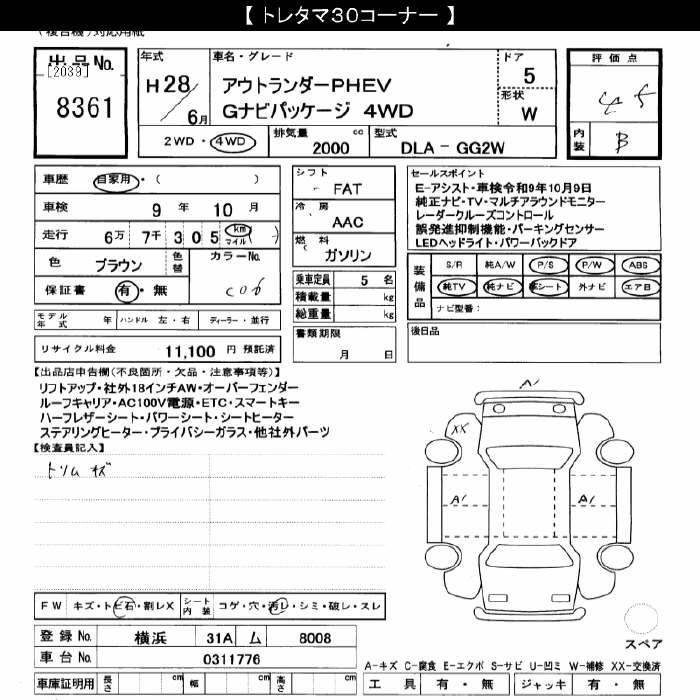 【 トレタマ30コーナー 】
(複合機) 対応用紙
出品No.
[2039]
8361
年式
H28/6月
車名・グレード
アウトランダーPHEV
Gナビパッケージ 4WD
ドア
5
形状
W
評価点
4.5
内装
B
2WD・4WD
排気量 cc
2000
型式
DLA - GG2W
車歴 自家用・( )
車検 9年 10月
走行 6万 7千 3 0 5 km マイル )
色 ブラウン
色替
カラーNo.
C06
保証書 有・無
モデル年式 年
ハンドル 左・右
ディーラー・並行
リサイクル料金 11,100 円 預託済
シフト
- FAT
冷房
AAC
燃料
ガソリン
乗車定員 5 名
積載量 kg
総重量 kg
書類期限
月 日
セールスポイント
E-アシスト・車検令和9年10月9日
純正ナビ・TV・マルチアラウンドモニター
レーダークルーズコントロール
誤発進抑制機能・パーキングセンサー
LEDヘッドライト・パワーバックドア
装備品
S/R 純A/W P/S P/W ABS
純TV 純ナビ 革シート 外ナビ エア日
ナビ型番:
後日品
【出品店申告欄(不良箇所・欠品・注意事項等)】
リフトアップ・社外18インチAW・オーバーフェンダー
ルーフキャリア・AC100V電源・ETC・スマートキー
ハーフレザーシート・パワーシート・シートヒーター
ステアリングヒーター・プライバシーガラス・他社外パーツ
【検査員記入】
トリム キズ
A1
XX
A1
A1
スペア
FW キズ・トビ石・割レX
シート内装 コゲ・穴・汚レ・シミ・破レ・スレ
登録No. 横浜 31A ム 8008
車台No. 0311776
車庫証明用 長さ cm 幅 cm 高さ cm
A-キズ C-腐食 E-エクボ S-サビ U-凹ミ W-補修 XX-交換済
工具 有・無 ジャッキ 有・無